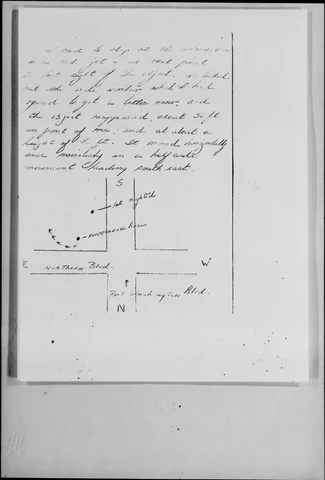 I had to stop at the intersection
on a red light & at that point
I lost sight of the object. I looked
out the side window which I had
opened to get a better view, and
the object reappeared, about 20 ft
in front of me, and at about a
height of ft. It moved horizontally
and noiselessly in a half
movement heading south east.
S
1st sighted
reappeared here
E
NORTHERN Blvd.
W
Port Washington Blvd.
N